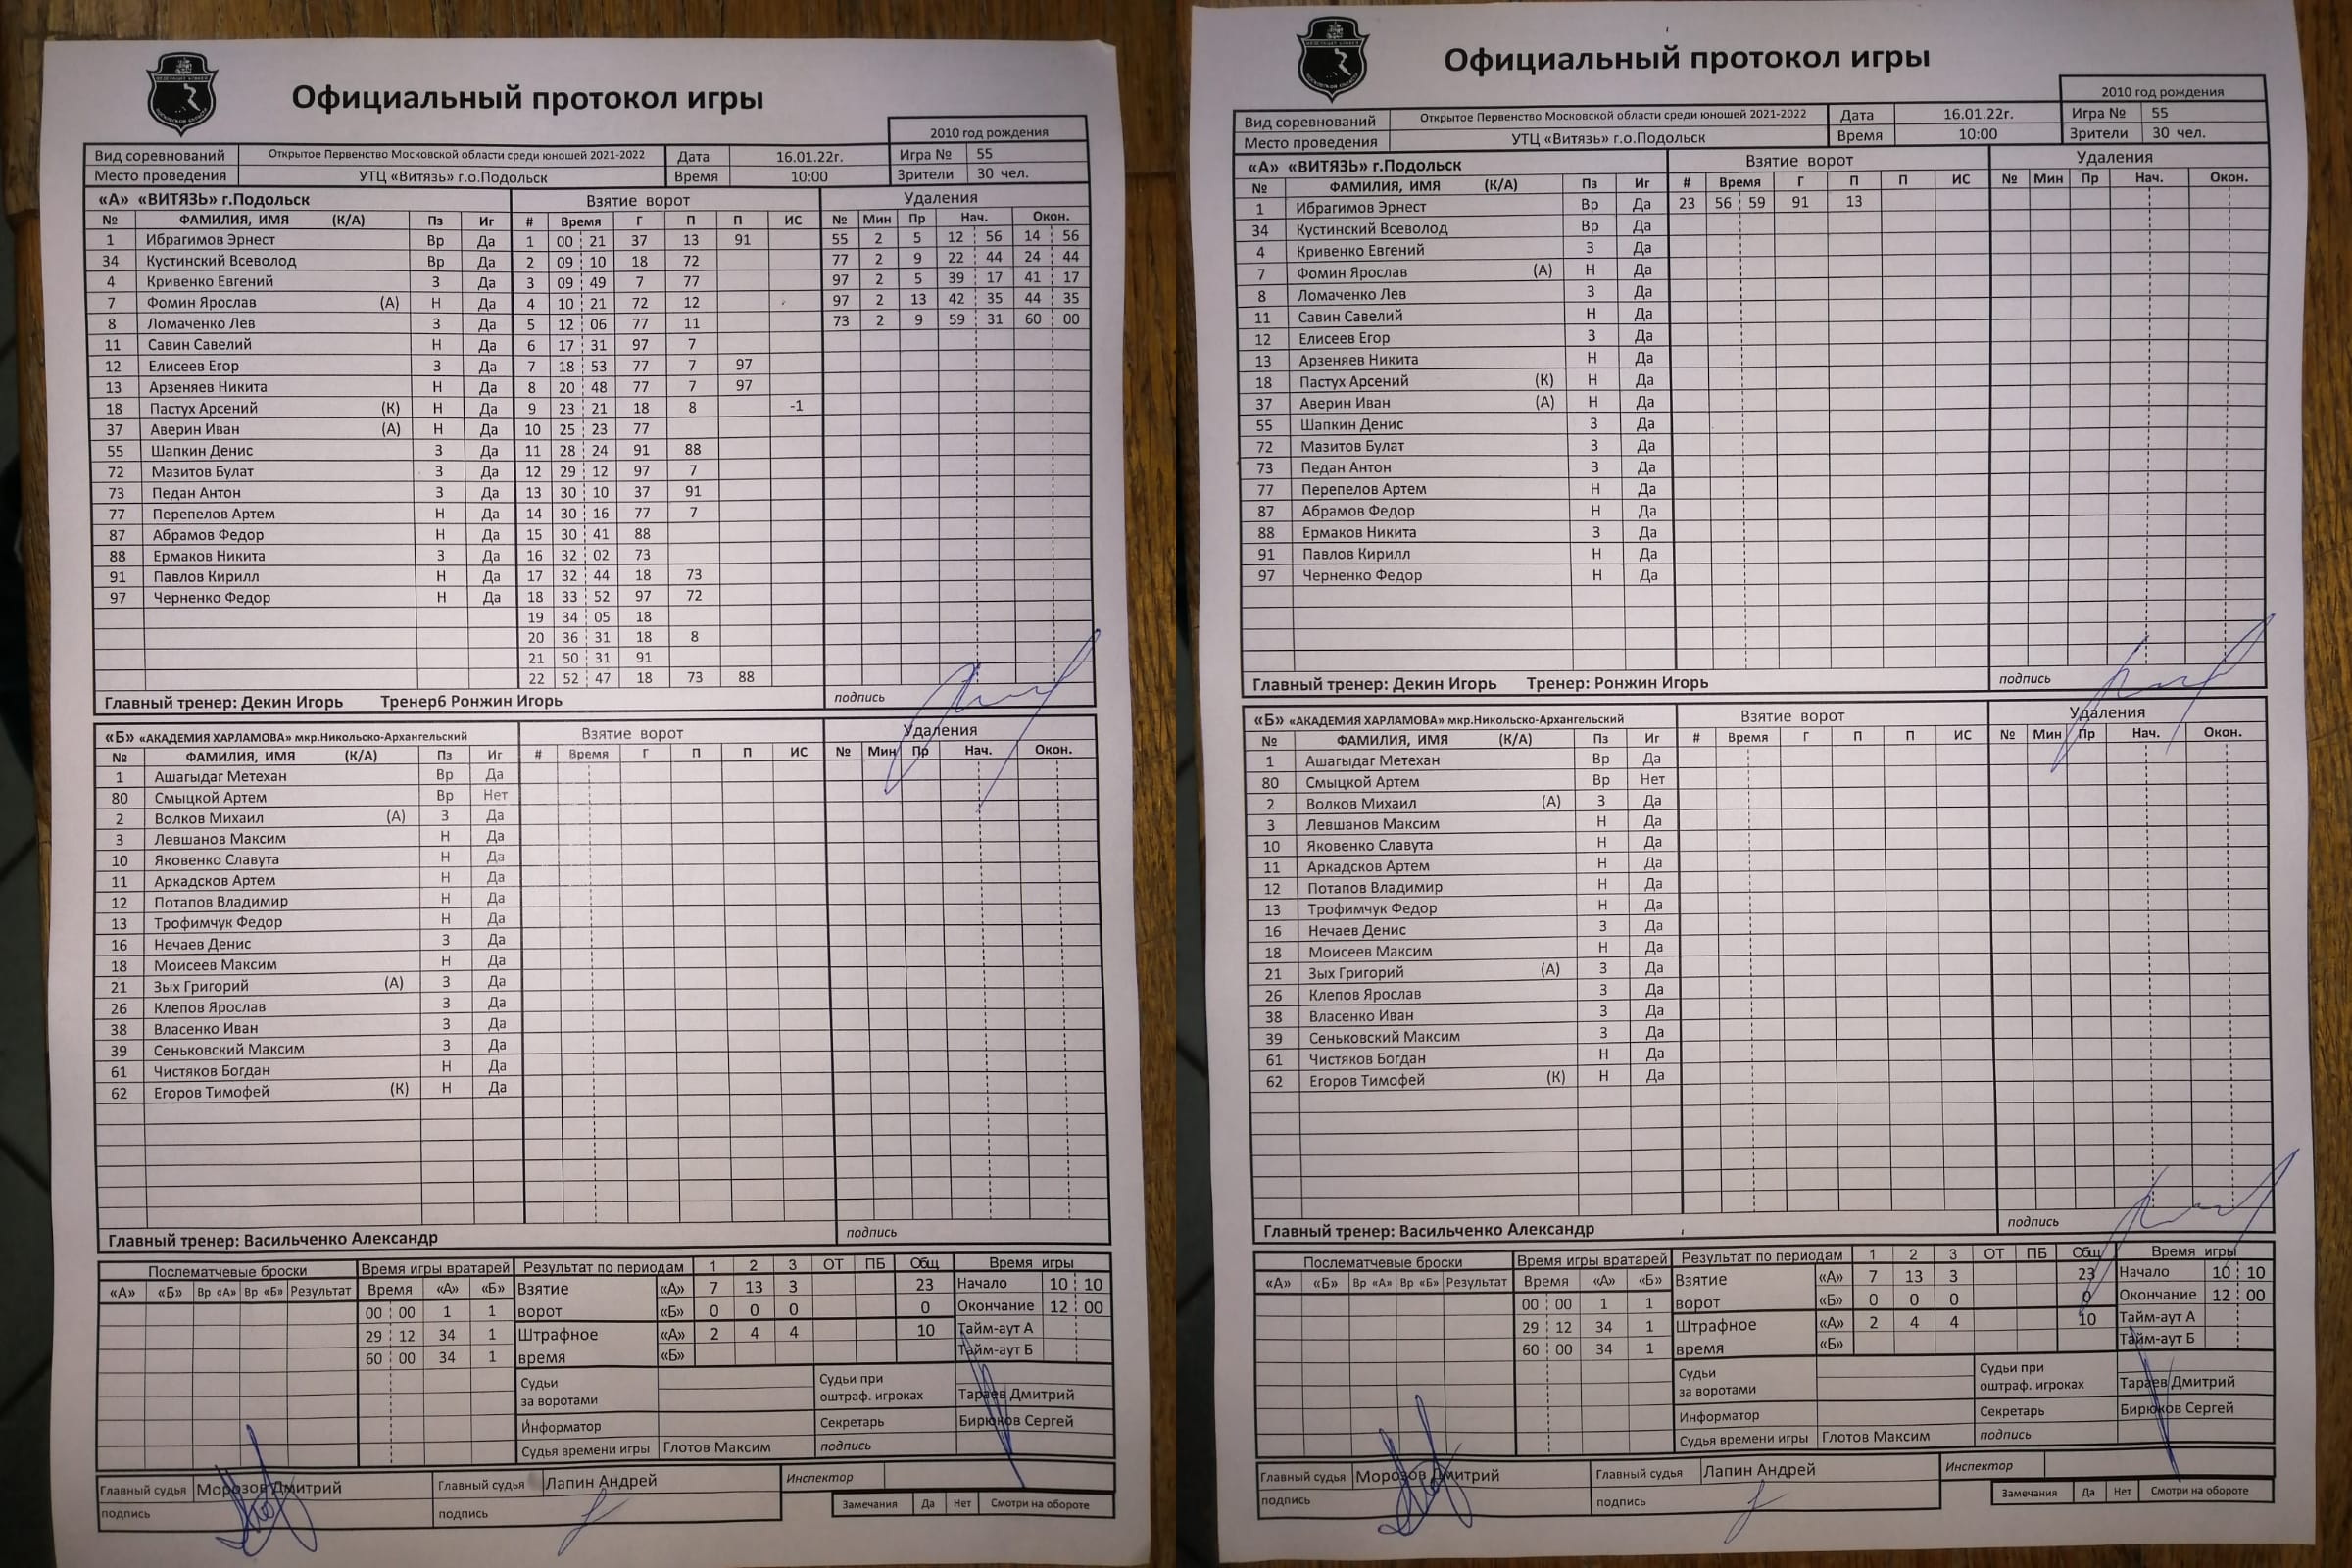 Официальный протокол игры
2010 год рождения
Вид соревнований Открытое Первенство Московской области среди юношей 2021-2022 Дата 16.01.22г. Игра № 55
Место проведения УТЦ «Витязь» г.о.Подольск Время 10:00 Зрители 30 чел.
«А» «ВИТЯЗЬ» г.Подольск Взятие ворот Удаления
№ ФАМИЛИЯ, ИМЯ (К/А) Пз Иг # Время Г П П ИС № Мин Пр Нач. Окон.
1 Ибрагимов Эрнест Вр Да 1 00 21 37 13 91 55 2 5 12 56 14 56
34 Кустинский Всеволод Вр Да 2 09 10 18 72 77 2 9 22 44 24 44
4 Кривенко Евгений З Да 3 09 49 7 77 97 2 5 39 17 41 17
7 Фомин Ярослав (А) Н Да 4 10 21 72 12 97 2 13 42 35 44 35
8 Ломаченко Лев З Да 5 12 06 77 11 73 2 9 59 31 60 00
11 Савин Савелий Н Да 6 17 31 97 7
12 Елисеев Егор З Да 7 18 53 77 7 97
13 Арзеняев Никита Н Да 8 20 48 77 7 97
18 Пастух Арсений (К) Н Да 9 23 21 18 8 -1
37 Аверин Иван (А) Н Да 10 25 23 77
55 Шапкин Денис З Да 11 28 24 91 88
72 Мазитов Булат З Да 12 29 12 97 7
73 Педан Антон З Да 13 30 10 37 91
77 Перепелов Артем Н Да 14 30 16 77 7
87 Абрамов Федор Н Да 15 30 41 88
88 Ермаков Никита З Да 16 32 02 73
91 Павлов Кирилл Н Да 17 32 44 18 73
97 Черненко Федор Н Да 18 33 52 97 72
19 34 05 18
20 36 31 18 8
21 50 31 91
22 52 47 18 73 88
Главный тренер: Декин Игорь Тренер6 Ронжин Игорь подпись
«Б» «АКАДЕМИЯ ХАРЛАМОВА» мкр.Никольско-Архангельский Взятие ворот Удаления
№ ФАМИЛИЯ, ИМЯ (К/А) Пз Иг # Время Г П П ИС № Мин Пр Нач. Окон.
1 Ашагыдаг Метехан Вр Да
80 Смыцкой Артем Вр Нет
2 Волков Михаил (А) З Да
3 Левшанов Максим Н Да
10 Яковенко Славута Н Да
11 Аркадсков Артем Н Да
12 Потапов Владимир Н Да
13 Трофимчук Федор Н Да
16 Нечаев Денис З Да
18 Моисеев Максим Н Да
21 Зых Григорий (А) З Да
26 Клепов Ярослав З Да
38 Власенко Иван З Да
39 Сеньковский Максим З Да
61 Чистяков Богдан Н Да
62 Егоров Тимофей (К) Н Да
Главный тренер: Васильченко Александр подпись
Послематчевые броски Время игры вратарей Результат по периодам 1 2 3 ОТ ПБ Общ Время игры
«А» «Б» Вр «А» Вр «Б» Результат Время «А» «Б» Взятие «А» 7 13 3 23 Начало 10 10
00 00 1 1 ворот «Б» 0 0 0 0 Окончание 12 00
29 12 34 1 Штрафное «А» 2 4 4 10 Тайм-аут А
60 00 34 1 время «Б» Тайм-аут Б
Судьи за воротами Судьи при оштраф. игроках Тараев Дмитрий
Информатор Секретарь Бирюков Сергей
Судья времени игры Глотов Максим подпись
Главный судья Морозов Дмитрий Главный судья Лапин Андрей Инспектор
подпись подпись Замечания Да Нет Смотри на обороте
Официальный протокол игры
2010 год рождения
Вид соревнований Открытое Первенство Московской области среди юношей 2021-2022 Дата 16.01.22г. Игра № 55
Место проведения УТЦ «Витязь» г.о.Подольск Время 10:00 Зрители 30 чел.
«А» «ВИТЯЗЬ» г.Подольск Взятие ворот Удаления
№ ФАМИЛИЯ, ИМЯ (К/А) Пз Иг # Время Г П П ИС № Мин Пр Нач. Окон.
1 Ибрагимов Эрнест Вр Да 23 56 59 91 13
34 Кустинский Всеволод Вр Да
4 Кривенко Евгений З Да
7 Фомин Ярослав (А) Н Да
8 Ломаченко Лев З Да
11 Савин Савелий Н Да
12 Елисеев Егор З Да
13 Арзеняев Никита Н Да
18 Пастух Арсений (К) Н Да
37 Аверин Иван (А) Н Да
55 Шапкин Денис З Да
72 Мазитов Булат З Да
73 Педан Антон З Да
77 Перепелов Артем Н Да
87 Абрамов Федор Н Да
88 Ермаков Никита З Да
91 Павлов Кирилл Н Да
97 Черненко Федор Н Да
Главный тренер: Декин Игорь Тренер: Ронжин Игорь подпись
«Б» «АКАДЕМИЯ ХАРЛАМОВА» мкр.Никольско-Архангельский Взятие ворот Удаления
№ ФАМИЛИЯ, ИМЯ (К/А) Пз Иг # Время Г П П ИС № Мин Пр Нач. Окон.
1 Ашагыдаг Метехан Вр Да
80 Смыцкой Артем Вр Нет
2 Волков Михаил (А) З Да
3 Левшанов Максим Н Да
10 Яковенко Славута Н Да
11 Аркадсков Артем Н Да
12 Потапов Владимир Н Да
13 Трофимчук Федор Н Да
16 Нечаев Денис З Да
18 Моисеев Максим Н Да
21 Зых Григорий (А) З Да
26 Клепов Ярослав З Да
38 Власенко Иван З Да
39 Сеньковский Максим З Да
61 Чистяков Богдан Н Да
62 Егоров Тимофей (К) Н Да
Главный тренер: Васильченко Александр подпись
Послематчевые броски Время игры вратарей Результат по периодам 1 2 3 ОТ ПБ Общ Время игры
«А» «Б» Вр «А» Вр «Б» Результат Время «А» «Б» Взятие «А» 7 13 3 23 Начало 10 10
00 00 1 1 ворот «Б» 0 0 0 0 Окончание 12 00
29 12 34 1 Штрафное «А» 2 4 4 10 Тайм-аут А
60 00 34 1 время «Б» Тайм-аут Б
Судьи за воротами Судьи при оштраф. игроках Тараев Дмитрий
Информатор Секретарь Бирюков Сергей
Судья времени игры Глотов Максим подпись
Главный судья Морозов Дмитрий Главный судья Лапин Андрей Инспектор
подпись подпись Замечания Да Нет Смотри на обороте